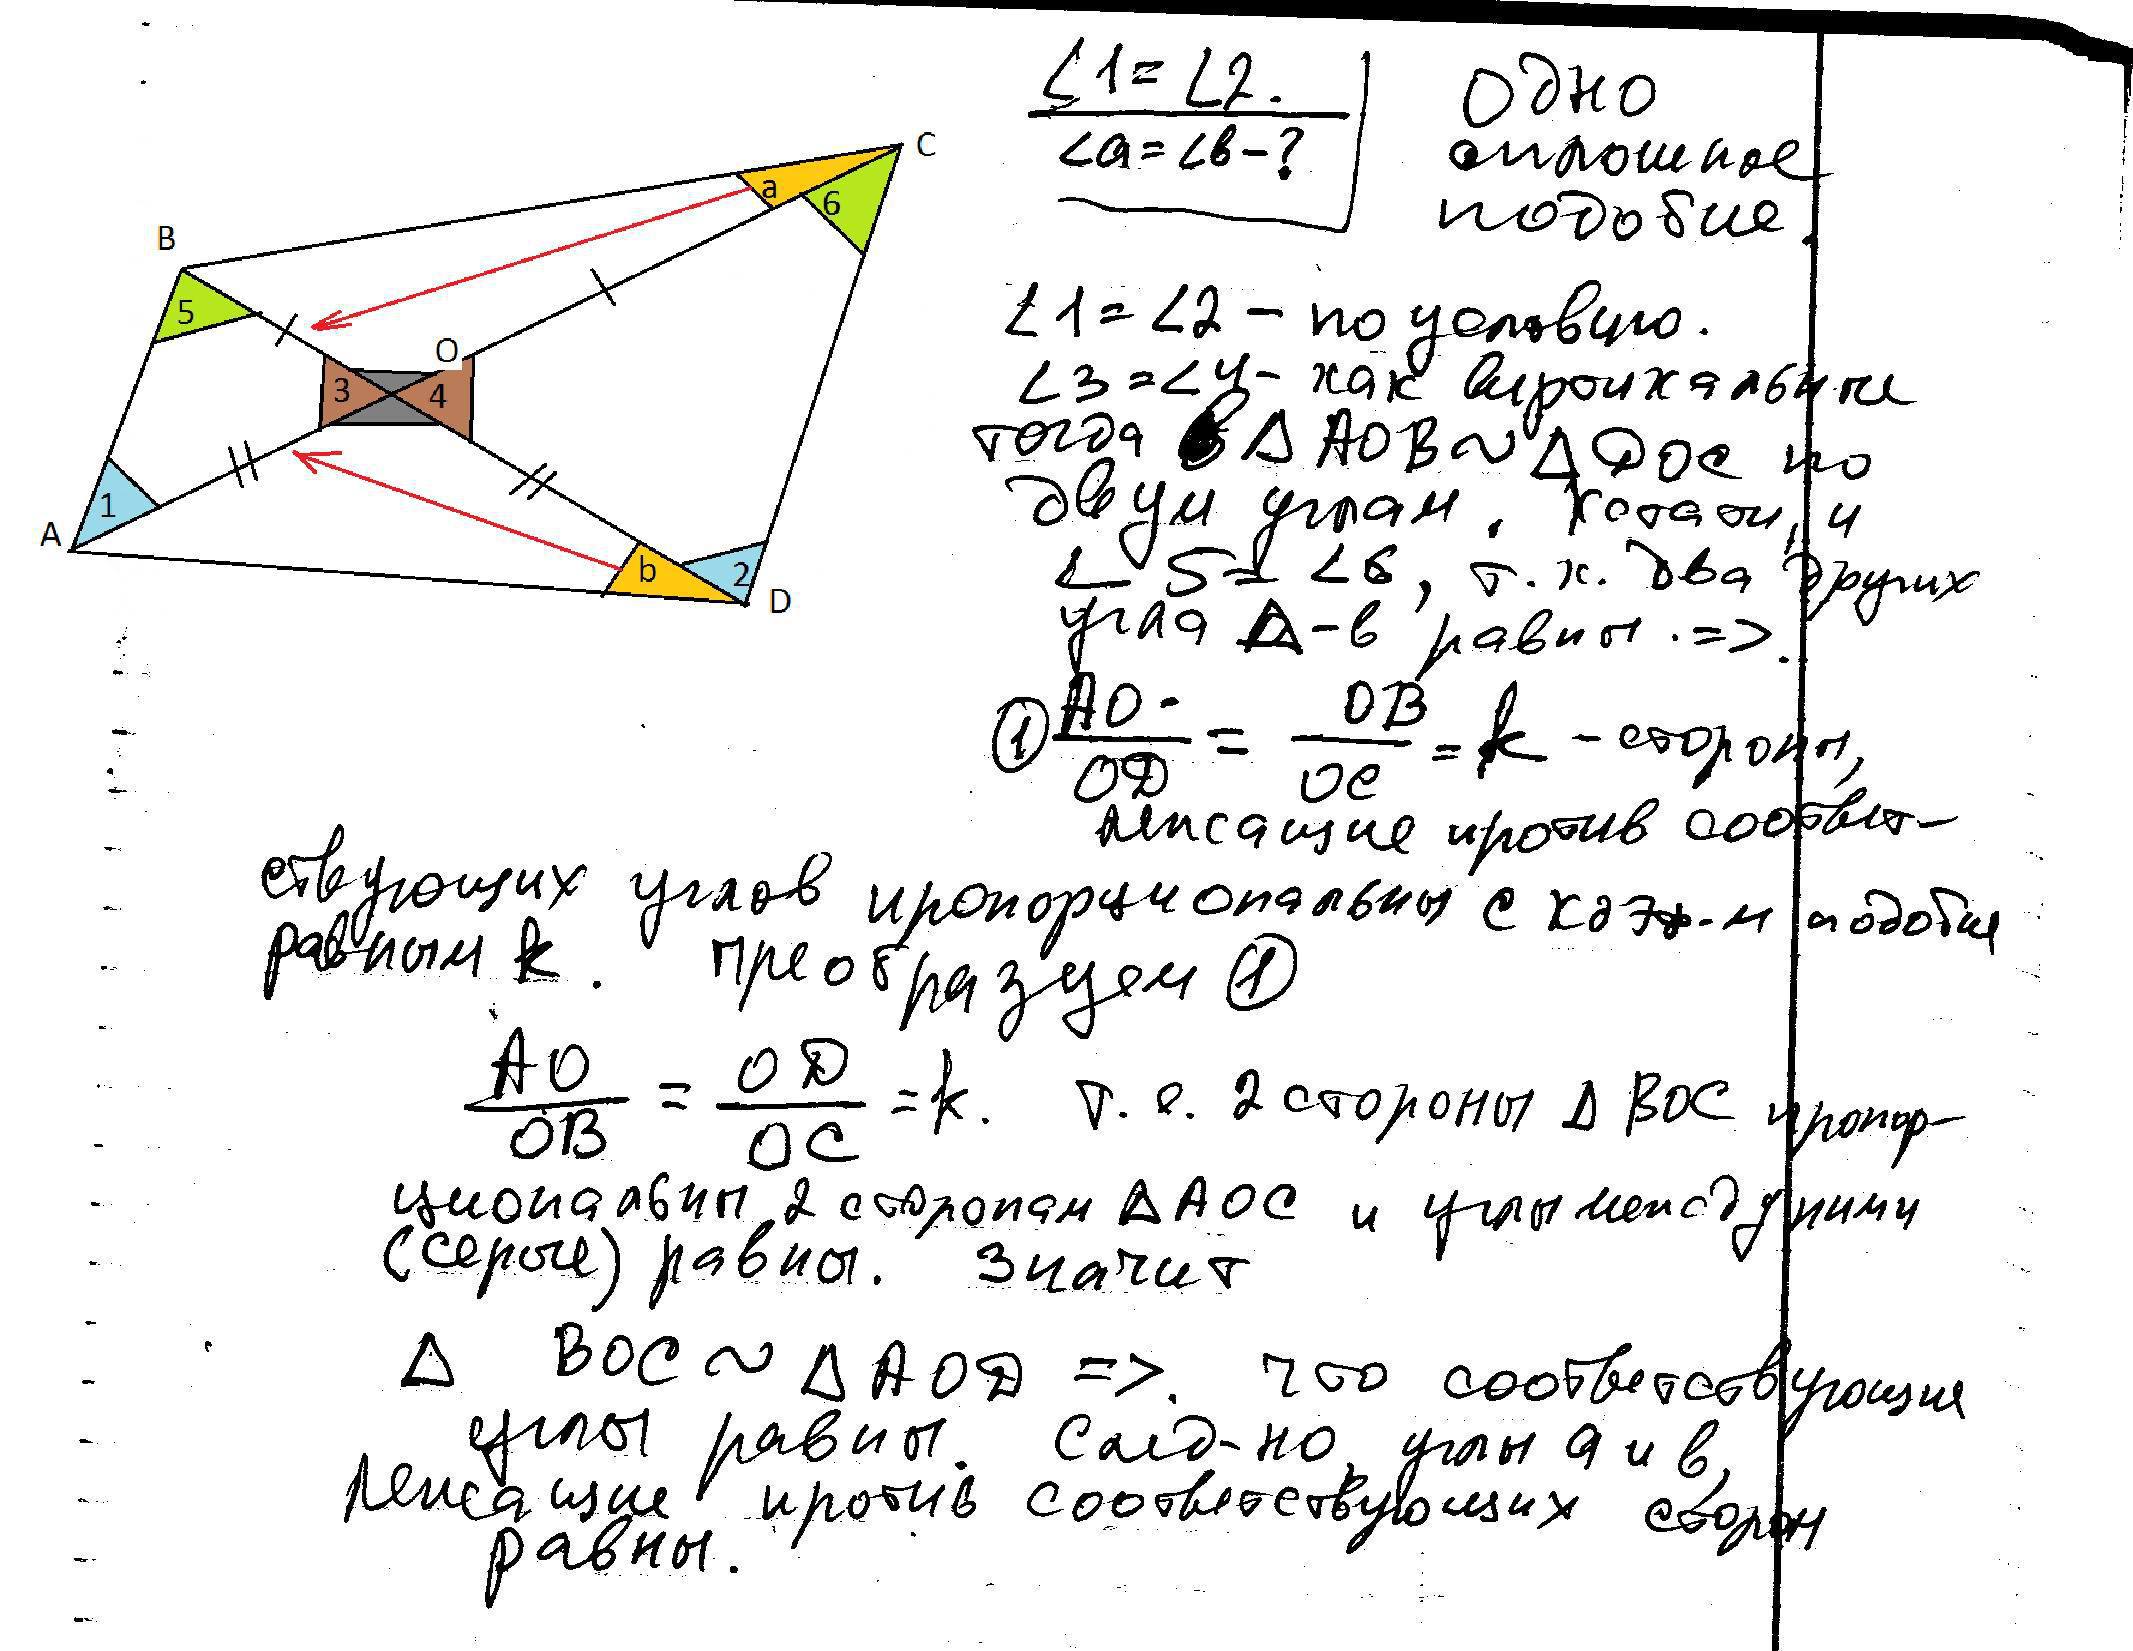 B
C
a
6
5
O
3
4
1
A
b
2
D
∠1 = ∠2.
∠a = ∠b - ?
Одно
сплошное
подобие.
∠1 = ∠2 - по условию.
∠3 = ∠4 - как вертикальные
тогда в Δ AOB ~ Δ DOC по
двум углам. Кстати, и
∠5 = ∠6, т.к. два других
угла Δ-в равны. =>.
① AO / OD = OB / OC = k - стороны,
лежащие против соответ-
ствующих углов пропорциональны с коэф-м подобия
равным k. Преобразуем ①
AO / OB = OD / OC = k. т.е. 2 стороны Δ BOC пропор-
циональны 2 сторонам Δ AOC и углы между ними
(серые) равны. Значит
Δ BOC ~ Δ AOD =>. что соответствующие
углы равны. След-но, углы a и b,
лежащие против соответствующих сторон
равны.